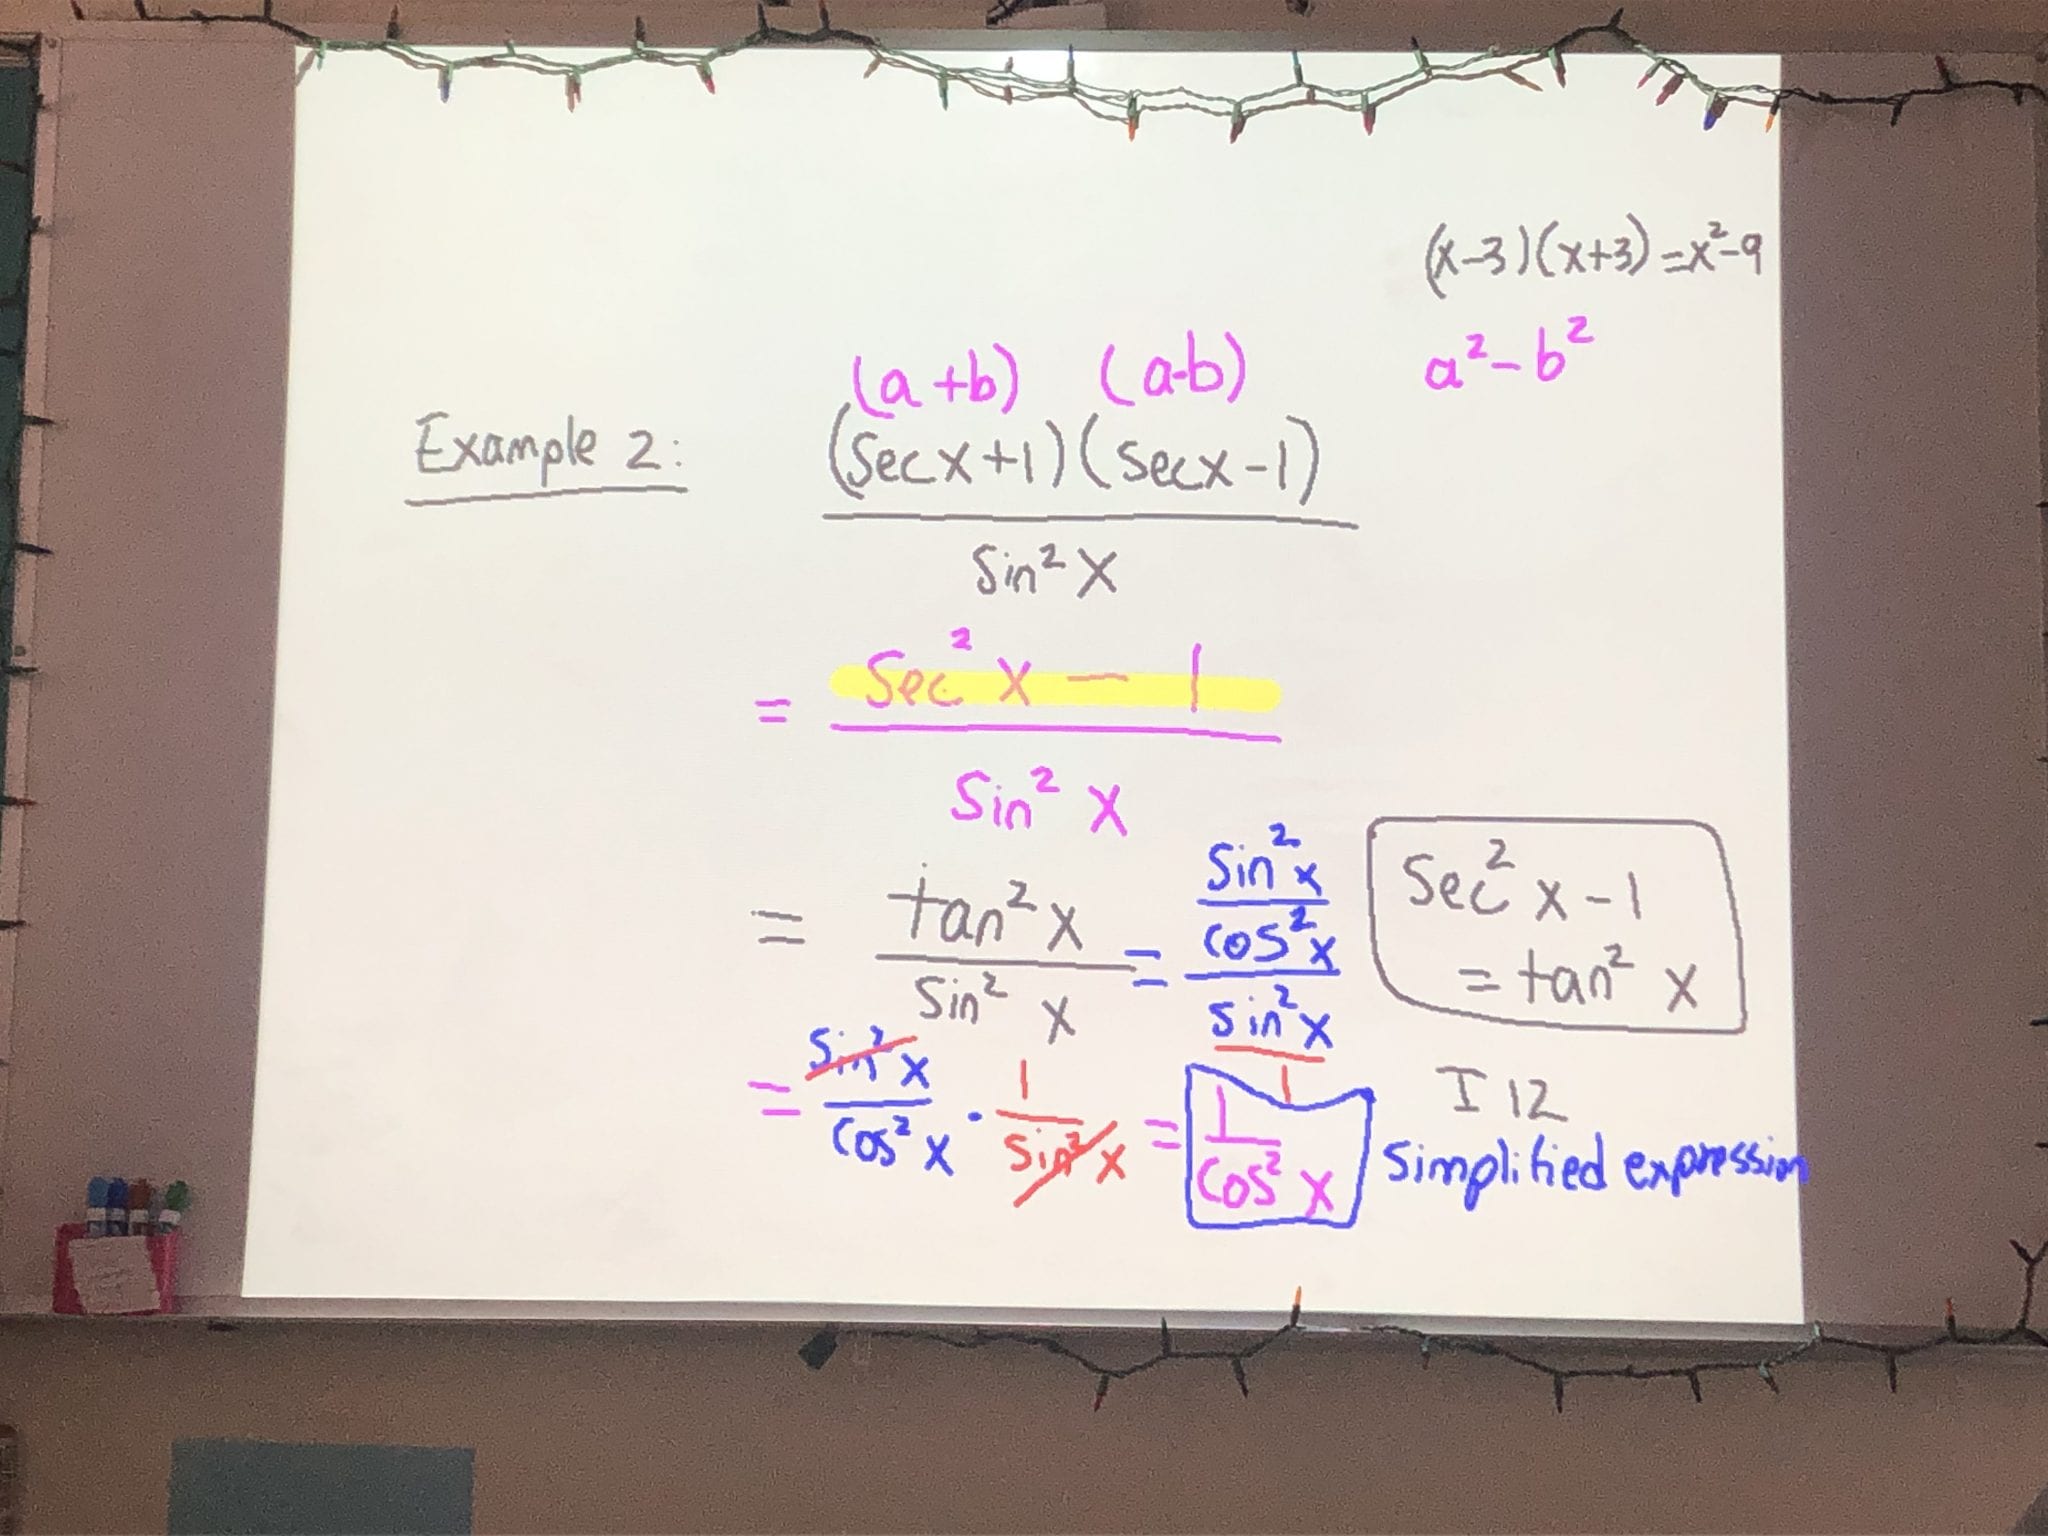 (x-3)(x+3)=x²-9
(a+b) (a-b) a²-b²
Example 2: (Secx+1)(Secx-1)
Sin²x
= Sec²x - 1
Sin²x
= tan²x
Sin²x
= Sin²x
Cos²x
Sin²x
1
Sec²x-1
= tan²x
I 12
= Sin²x
Cos²x
· 1
Sin²x
= 1
Cos²x
Simplified expression